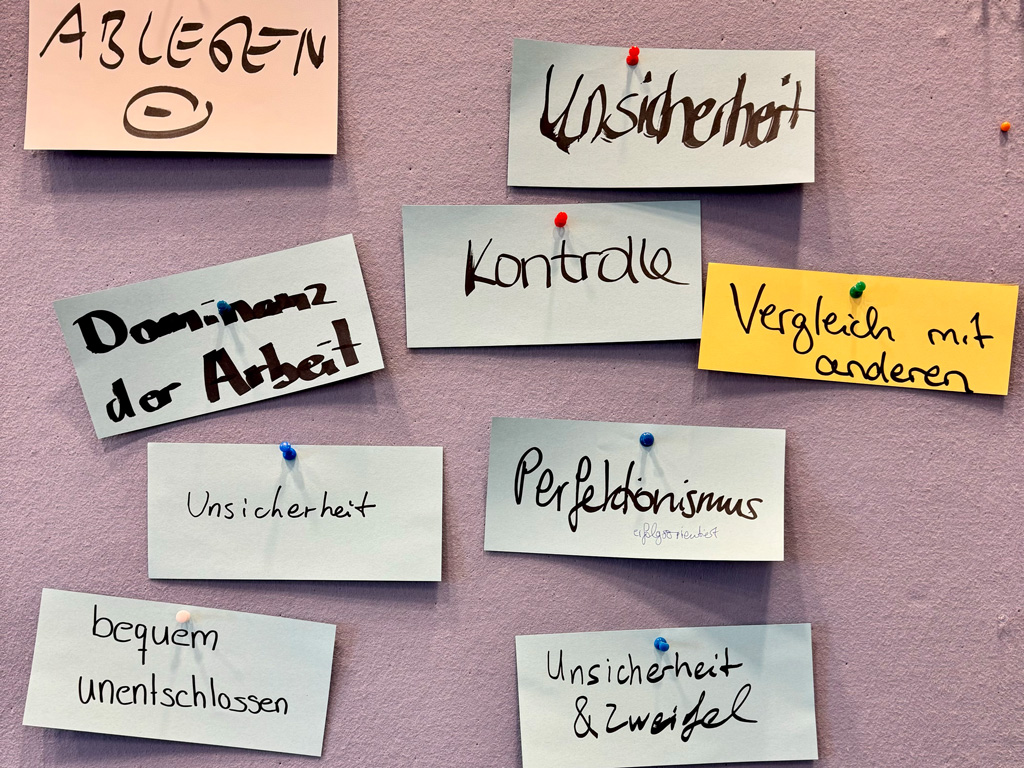 ABLEGEN
Unsicherheit
Kontrolle
Dominanz
der Arbeit
Vergleich mit
anderen
Unsicherheit
Perfektionismus
erfolgsorientiert
bequem
unentschlossen
Unsicherheit
& Zweifel